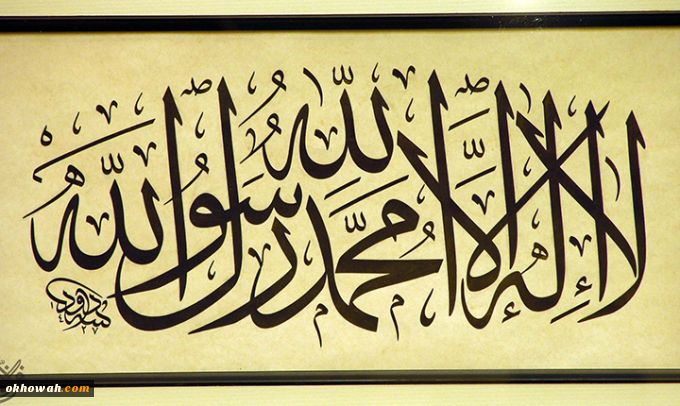 لا إله إلا الله محمد رسول الله
okhowah.com